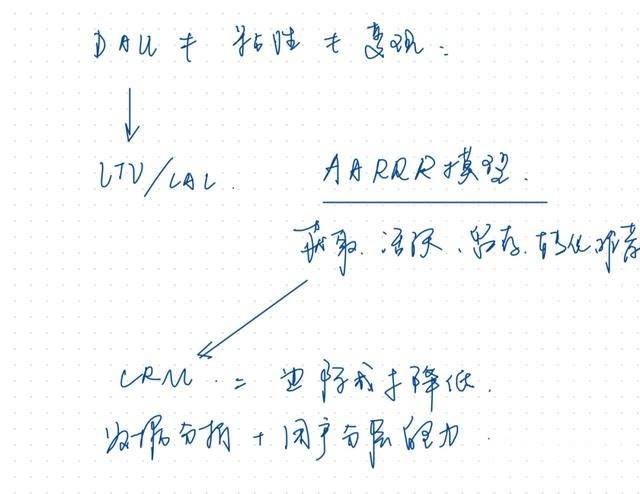 DAU + 粘性 + 变现:
LTV/CAC.
AARRR模型.
获取、活跃、留存、转化 推荐
CRM := 边际成本降低.
数据分析 + 用户分层能力.